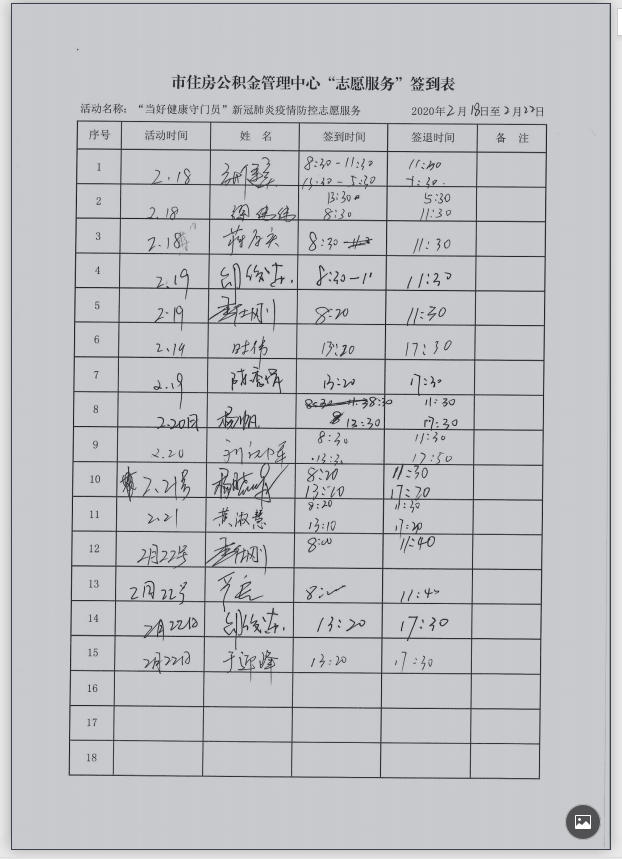 市住房公积金管理中心“志愿服务”签到表
活动名称：“当好健康守门员”新冠肺炎疫情防控志愿服务 2020年2月18日至2月22日
序号 活动时间 姓 名 签到时间 签退时间 备 注
1 2.18 8:30-11:30 11:30
13:30-5:30
2 2.18 13:30 5:30
8:30 11:30
3 2.18 8:30 11:30
4 2.19 8:30-11 11:30
5 2.19 8:20 11:30
6 2.19 时伟 13:20 17:30
7 2.19 13:20 17:30
8 2.20日 杨帆 8:30 11:30
13:30 17:30
9 2.20 8:30 11:30
13:30 17:50
10 2.21号 8:20 11:30
13:10 17:20
11 2.21 黄淑慧 8:20 11:30
13:10 17:20
12 2月22号 8:00 11:40
13 2月22号 8: 11:40
14 2月22日 13:20 17:30
15 2月22日 于迎峰 13:20 17:30
16
17
18